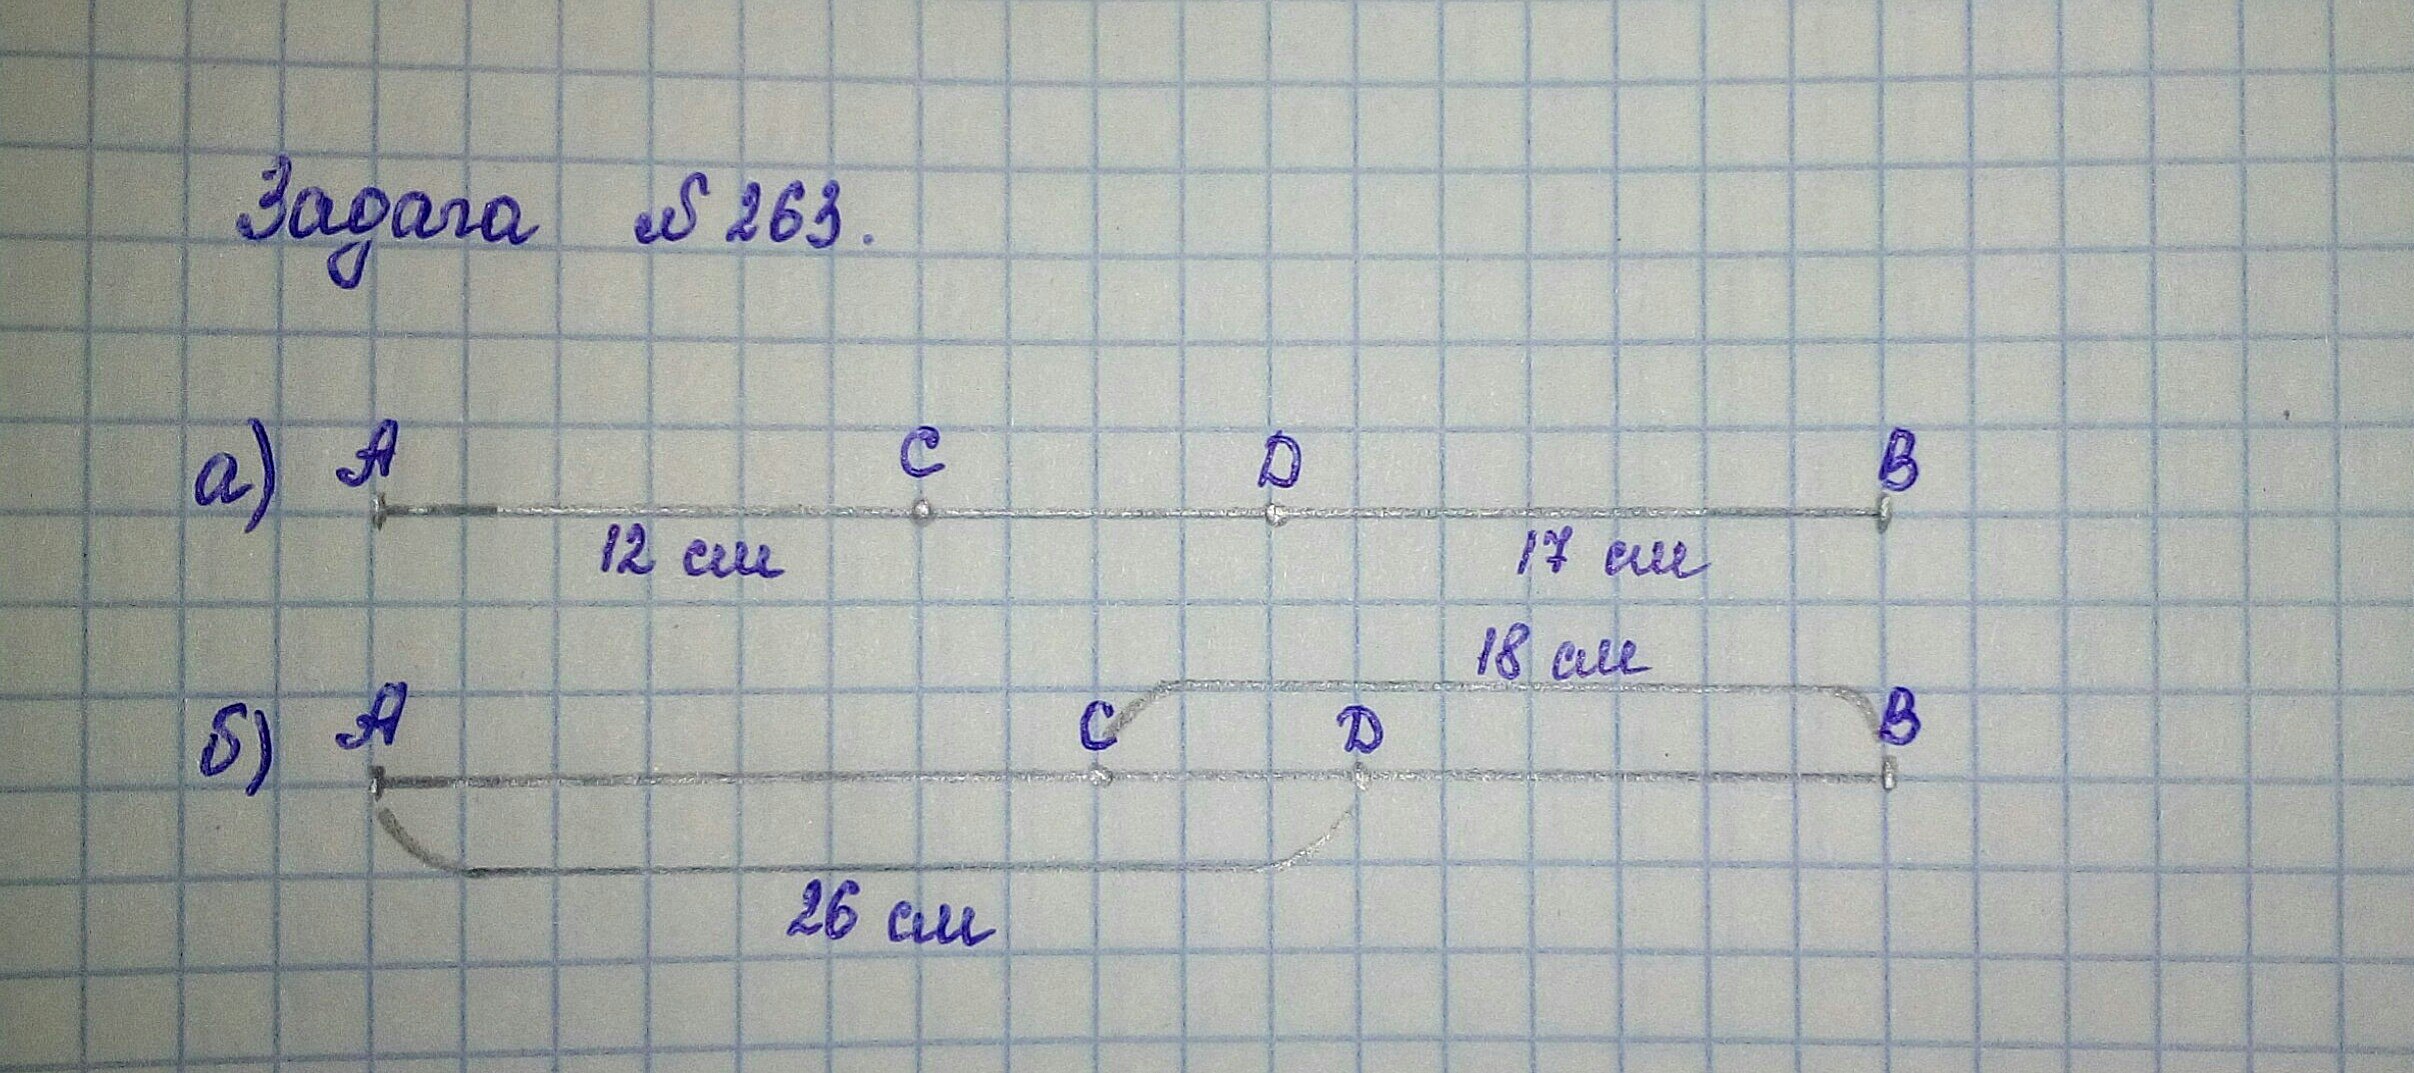 Задача №263.
а) A C D B
12 см 17 см
18 см
б) A C D B
26 см